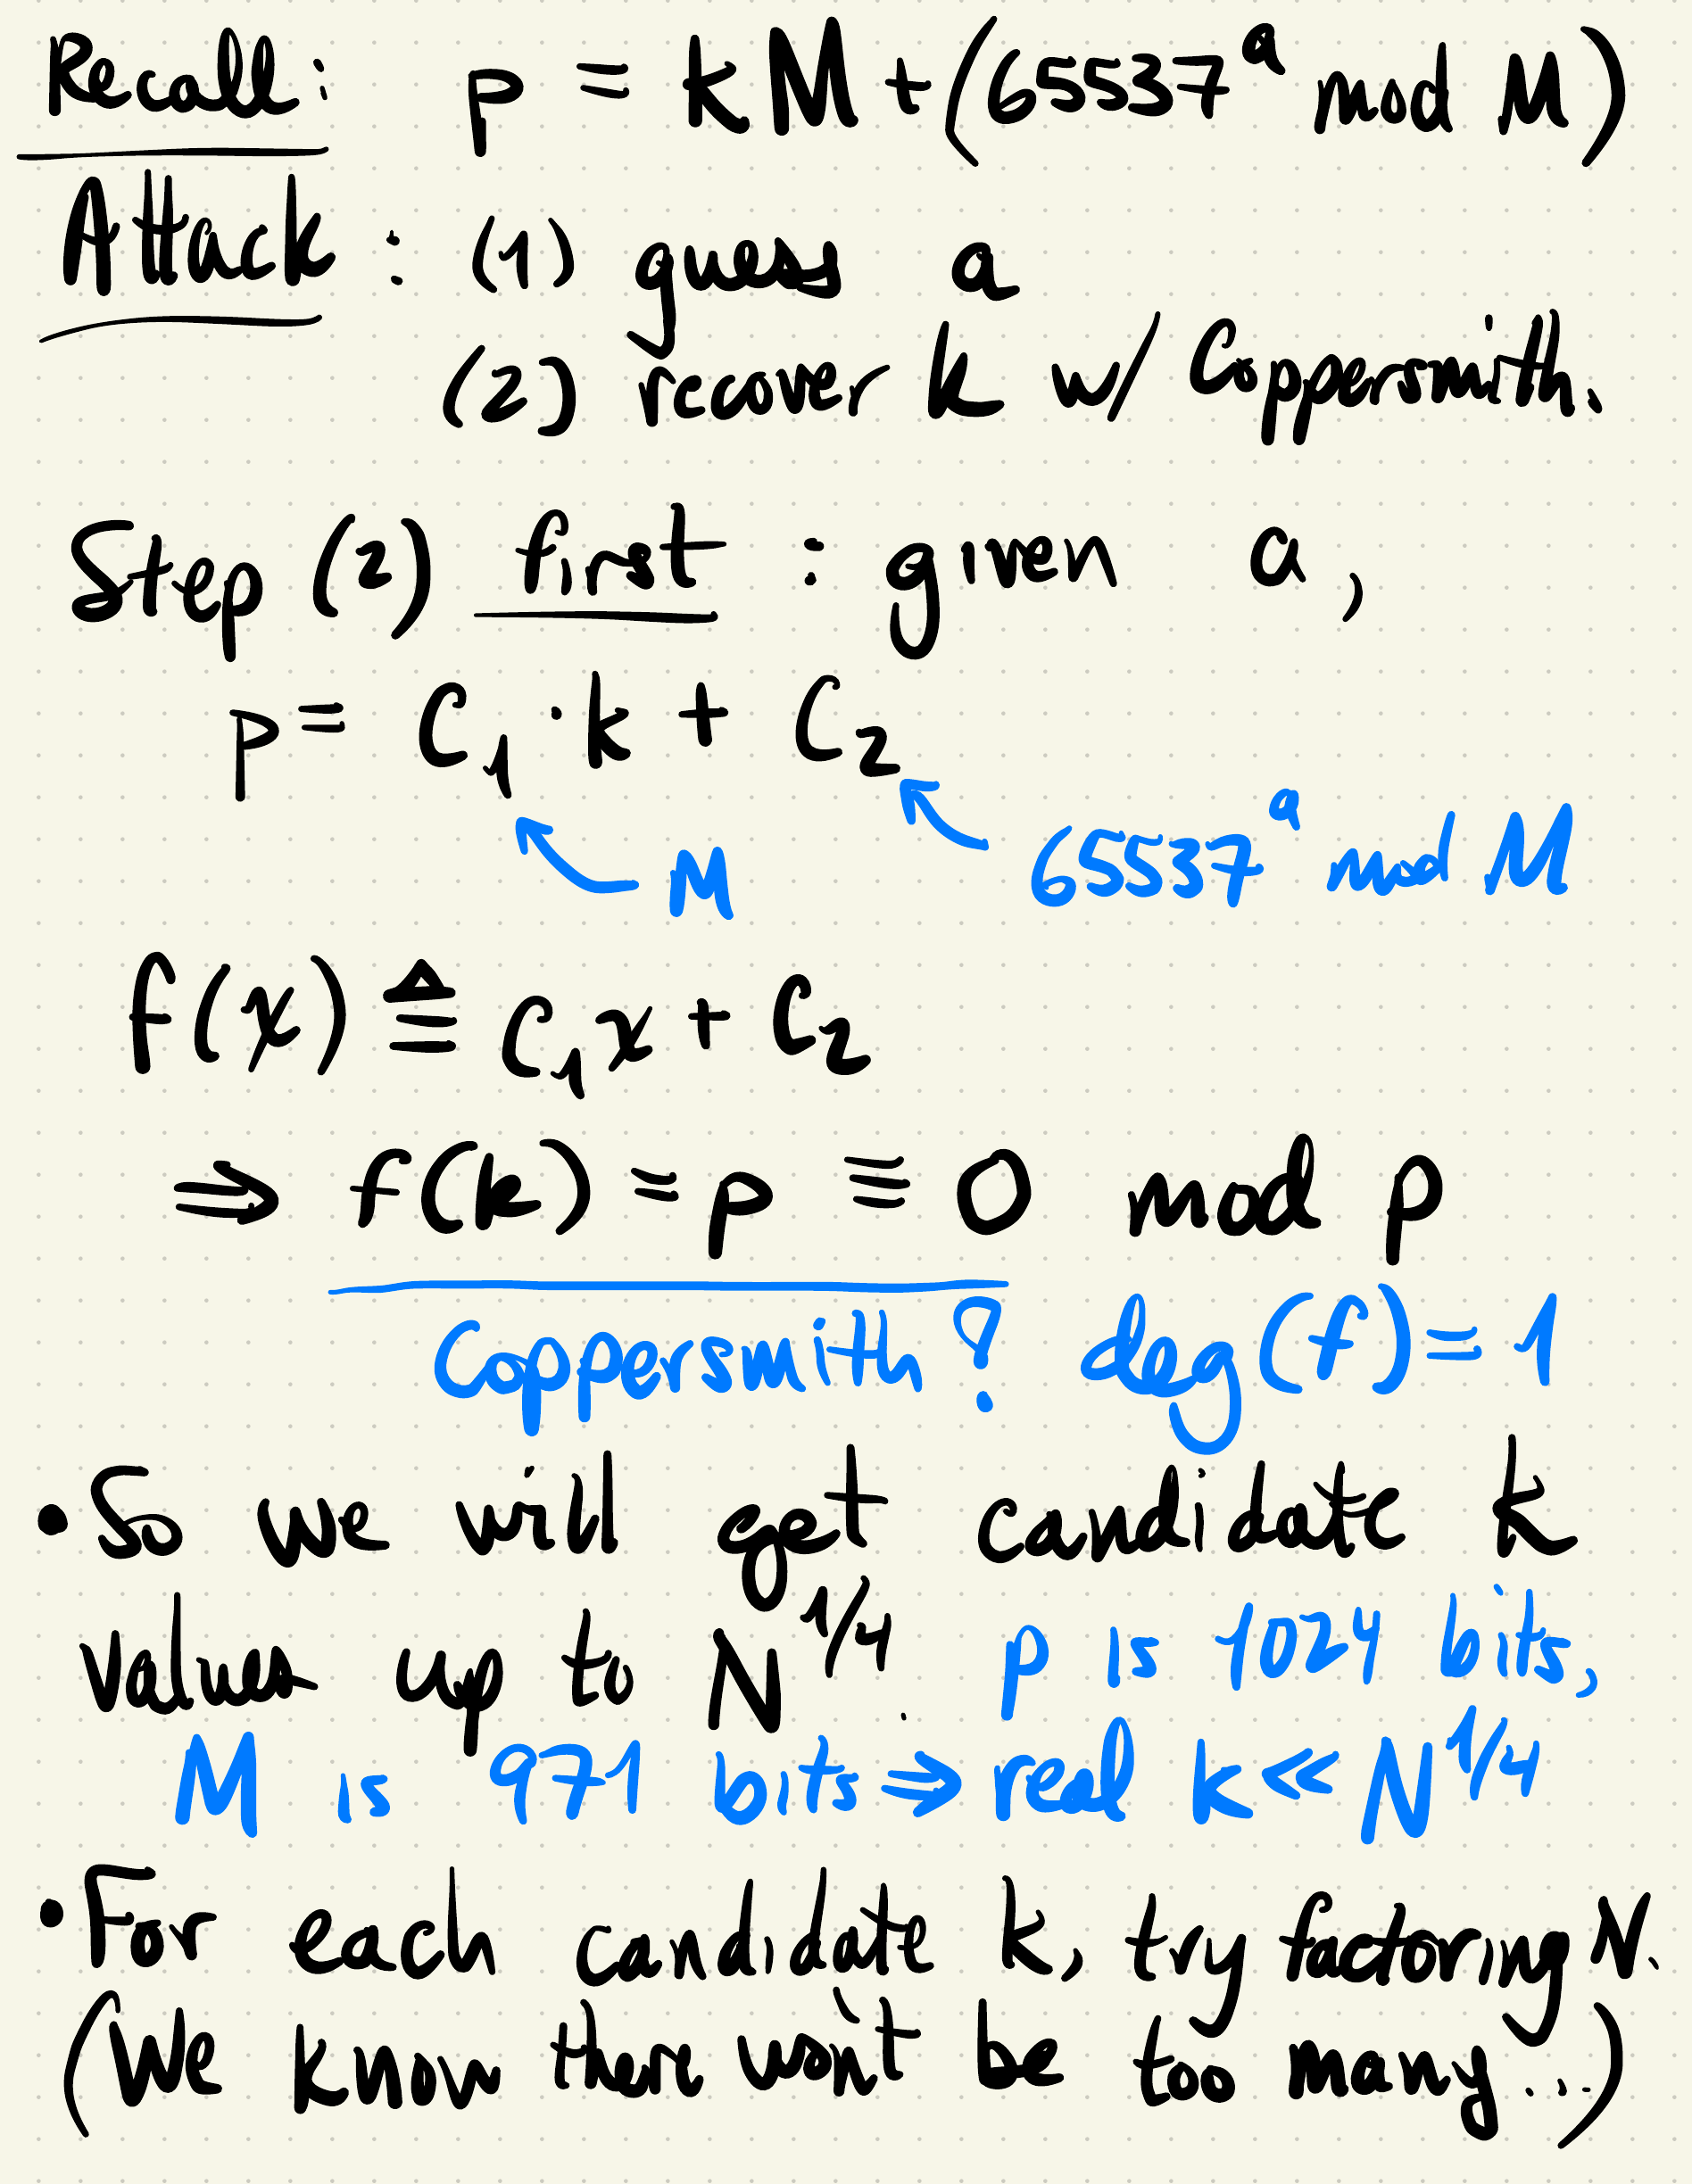 Recall: p = kM + (65537^a mod M)
Attack: (1) guess a
(2) recover k w/ Coppersmith.
Step (2) first: given a,
p = C₁·k + C₂
M
65537^a mod M
f(x) ≜ C₁x + C₂
⇒ f(k) = p ≡ 0 mod p
Coppersmith? deg(f) = 1
• So we will get candidate k
values up to N^1/4. p is 1024 bits,
M is 971 bits ⇒ real k ≪ N^1/4
• For each candidate k, try factoring N.
(We know there won't be too many...)